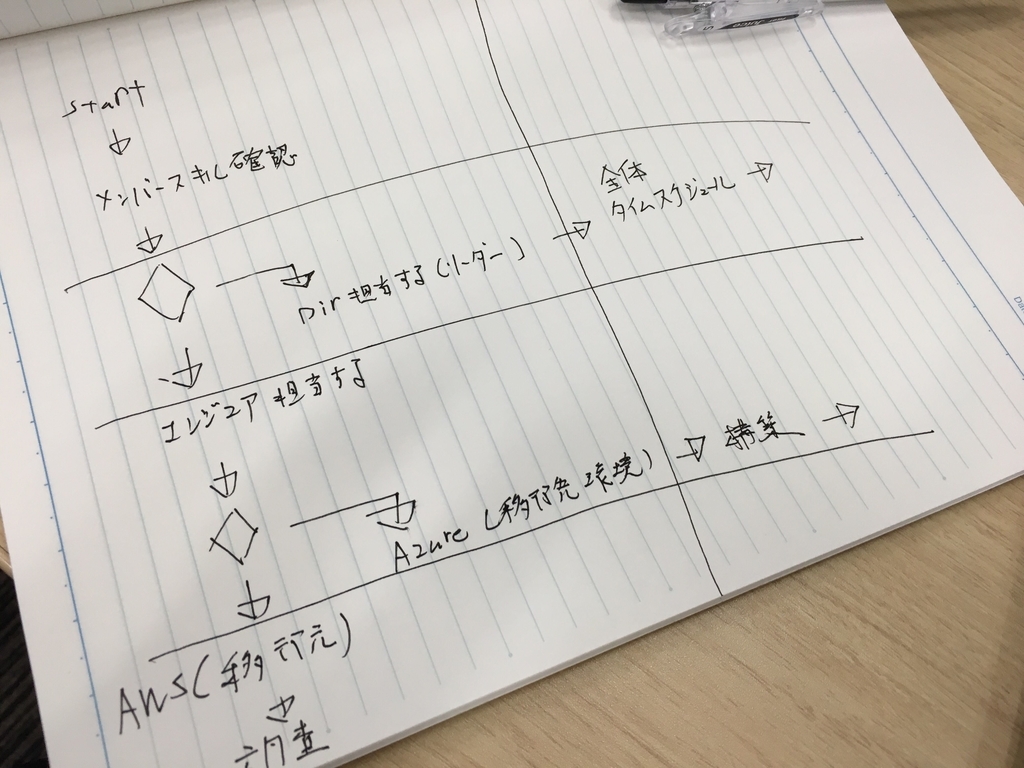 start
メンバースキル確認
全体
タイムスケジュール
Dir 担当する(リーダー)
エンジニア 担当する
構築
Azure (移行先 環境)
AWS(移行元)
調査
Juice